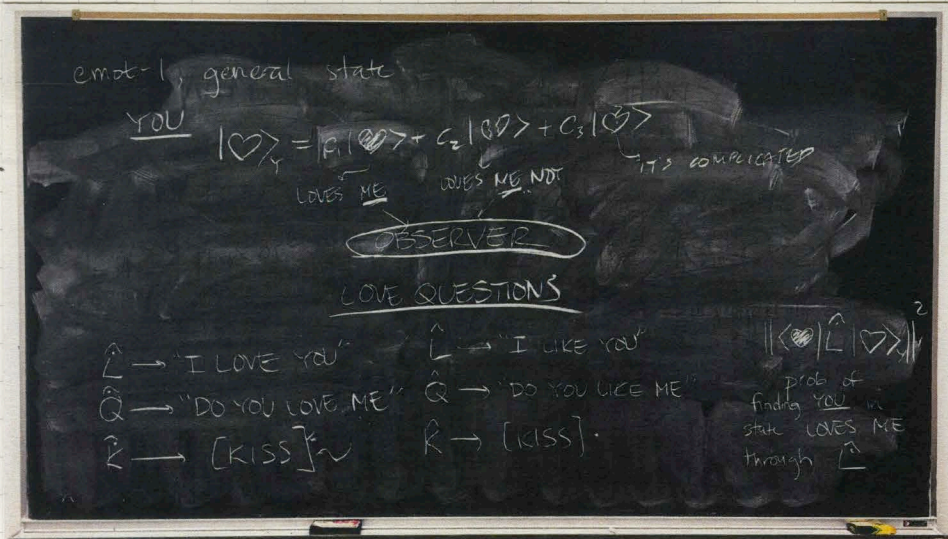 emot-1, general state
YOU
|♡⟩_Y = |c₁|♥⟩ + c₂|♡⟩ + c₃|♡⟩
LOVES ME
LOVES ME NOT
IT'S COMPLICATED
OBSERVER
LOVE QUESTIONS
L̂ → "I LOVE YOU"
L̂ → "I LIKE YOU"
Q̂ → "DO YOU LOVE ME"
Q̂ → "DO YOU LIKE ME"
[KISS]
K̂ → [KISS].
||⟨♥|L̂|♡⟩_Y||²
prob of
finding YOU in
state LOVES ME
through L̂